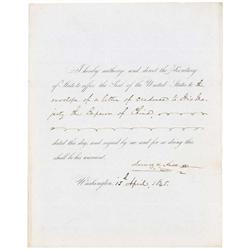 I hereby authorize and direct the Secretary
of State to affix the Seal of the United States to the
envelope of a letter of credence to His Ma-
jesty the Emperor of China,
dated this day, and signed by me and for so doing this
shall be his warrant.
Washington, 15th April, 1845.